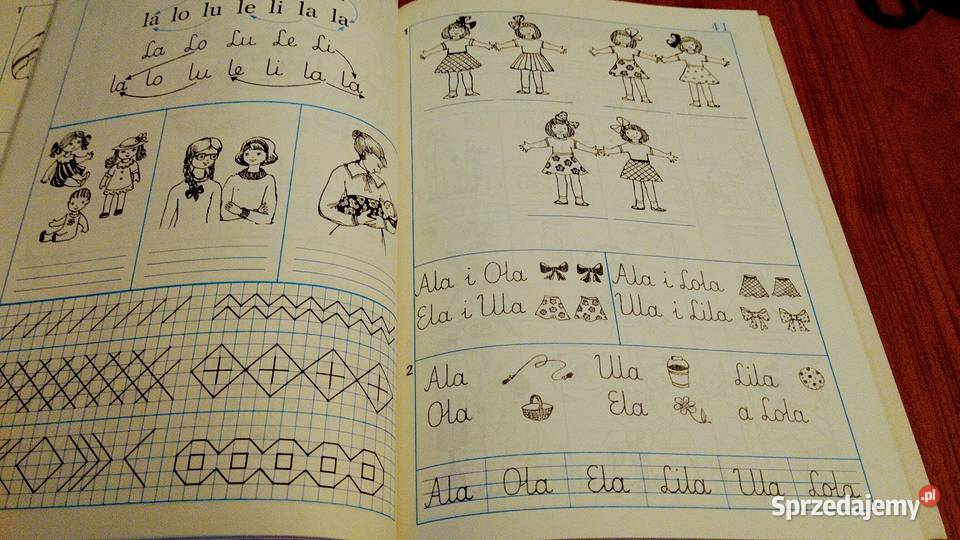 la lo lu le li la la
La Lo Lu Le Li
la lo lu le li la la
41
1
Ala i Ola
Ela i Ula
Ala i Lola
Ula i Lila
2
Ala
Ula
Lila
Ola
Ela
a Lola
Ala Ola Ela Lila Ula Lola
Sprzedajemy.pl